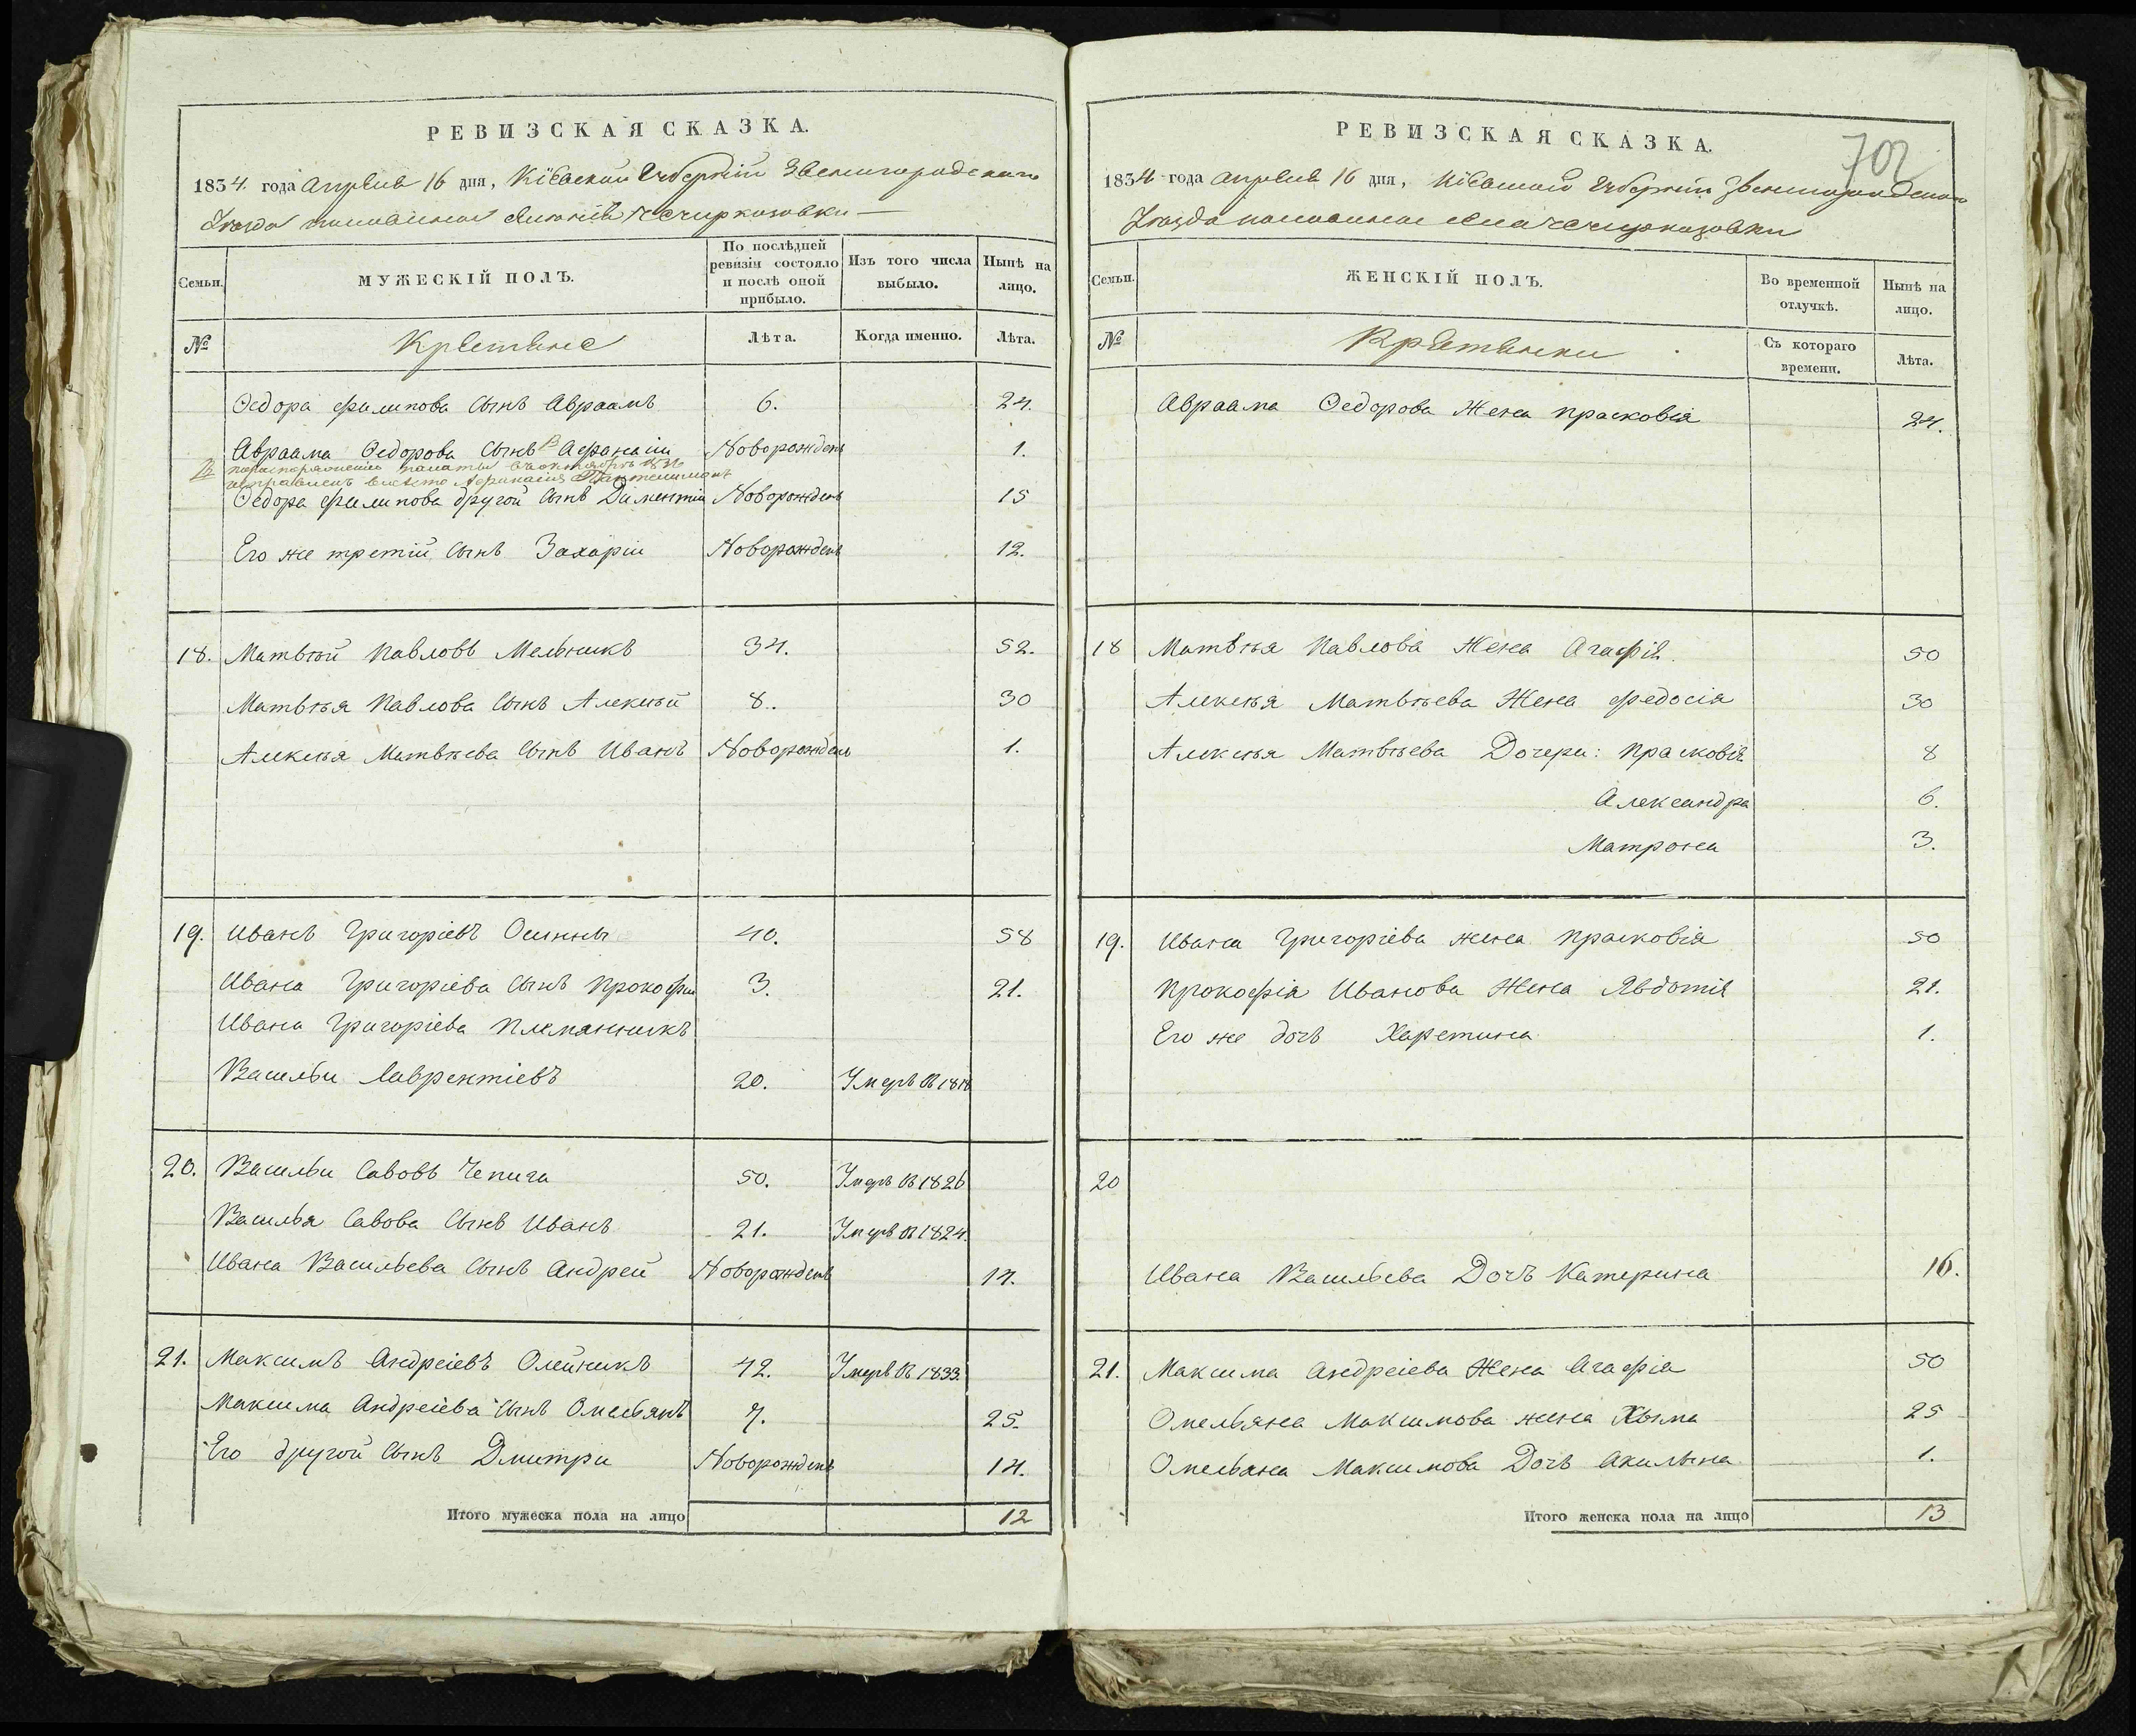 РЕВИЗСКАЯ СКАЗКА.
1834. года Апреля 16 дня, Кіевской Губерніи Звенигородскаго
Уезда половинной Чечиркозовки
Семьи.
МУЖЕСКІЙ ПОЛЪ.
По послѣдней ревизіи состояло и послѣ оной прибыло.
Изъ того числа выбыло.
Нынѣ на лицо.
№
Крестьяне
Лѣта.
Когда именно.
Лѣта.
Ѳедора Филипова Сынъ Авраамъ 6. 24.
Авраама Ѳедорова Сынъ Афанасіи Новорожденъ 1.
вместо Афанасия Пантелимонъ
Ѳедора Филипова другой Сынъ Диментіи Новорожденъ 15
Его же третій Сынъ Захаріи Новорожденъ 12.
18. Матвѣй Павловъ Мельникъ 34. 52.
Матвѣя Павлова Сынъ Алексѣй 8. 30
Алексѣя Матвѣева Сынъ Иванъ Новорожденъ 1.
19. Иванъ Григоріевъ 40. 58
Ивана Григоріева Сынъ Прокофіи 3. 21.
Ивана Григоріева Племянникъ
Васильи Лаврентіевъ 20. Умеръ въ
20. Васильи Савовъ Чепига 50. Умеръ въ 1826
Василья Савова Сынъ Иванъ 21. Умеръ въ 1824.
Ивана Васильева Сынъ Андрей Новорожденъ 14.
21. Максимъ Андреіевъ Олейникъ 42. Умеръ въ 1833.
Максима Андреіева Сынъ Омельянъ 7. 25.
Его другой Сынъ Дмитри Новорожденъ 14.
Итого мужеска пола на лицо 12
702
РЕВИЗСКАЯ СКАЗКА.
1834 года Апреля 16 дня, Кіевской Губерніи Звенигородскаго
Уезда половинной села Чечиркозовки
Семьи.
ЖЕНСКІЙ ПОЛЪ.
Во временной отлучкѣ.
Нынѣ на лицо.
№
Крестьянки
Съ котораго времени.
Лѣта.
Авраама Ѳедорова Жена Прасковія 24.
18 Матвѣя Павлова Жена Агафія. 50
Алексѣя Матвѣева Жена Федосія 30
Алексѣя Матвѣева Дочери: Прасковія 8
Александра 6.
Матрона 3.
19. Ивана Григоріева жена Прасковія 50
Прокофія Иванова Жена Явдотія 21.
Его же дочъ Харетина 1.
20
Ивана Васильева Дочъ Катерина 16.
21. Максима Андреіева Жена Агафія 50
Омельяна Максимова жена Хыма 25
Омельяна Максимова Дочъ Акилына 1.
Итого женска пола на лицо 13